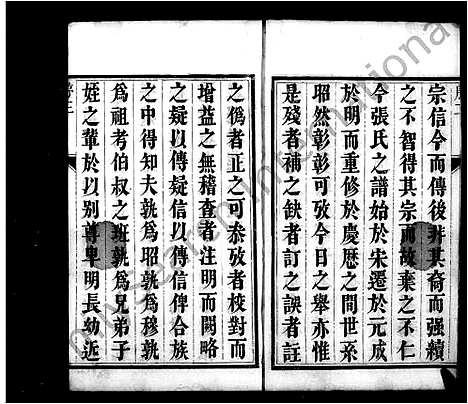 宗信今而傳後非其裔而强續
之不智得其宗而故棄之不仁
今張氏之譜始於宋遷於元成
於明而重修於慶歷之間世系
昭然彰彰可攷今日之舉亦惟
是殘者補之缺者訂之誤者註
之僞者正之可叅攷者校對而
增益之無稽查者注明而闕略
之疑以傳疑信以傳信俾合族
之中得知夫孰爲昭孰爲穆孰
爲祖考伯叔之班孰爲兄弟子
姪之輩於以別尊卑明長幼近
My Search International